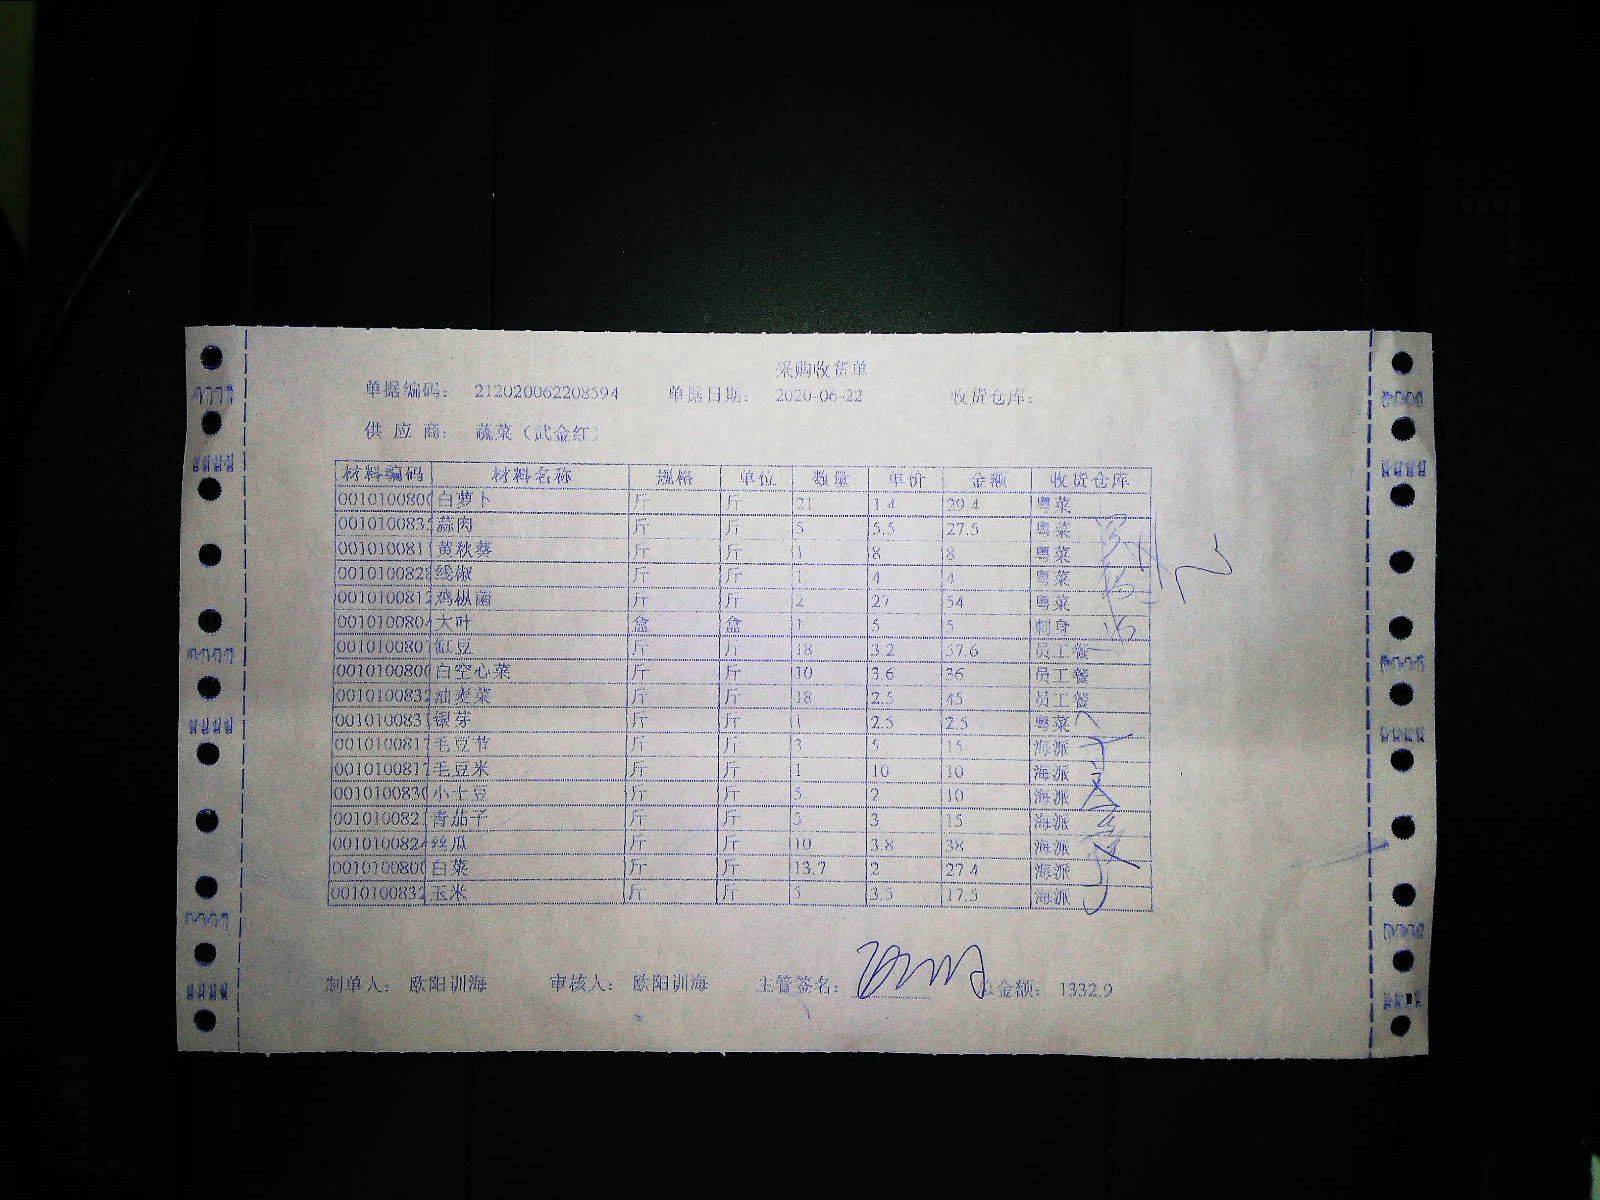 采购收货单
单据编码: 212020062208594 单据日期: 2020-06-22 收货仓库:
供 应 商: 蔬菜（武金红）
材料编码 材料名称 规格 单位 数量 单价 金额 收货仓库
0010100800 白萝卜 斤 斤 21 1.4 29.4 粤菜
001010083 蒜肉 斤 斤 5 5.5 27.5 粤菜
001010081 黄秋葵 斤 斤 1 8 8 粤菜
0010100828 线椒 斤 斤 1 4 4 粤菜
0010100812 鸡枞菌 斤 斤 2 27 54 粤菜
001010080 大叶 盒 盒 1 5 5 刺身
0010100807 缸豆 斤 斤 18 3.2 57.6 员工餐
0010100800 白空心菜 斤 斤 10 3.6 36 员工餐
0010100832 油麦菜 斤 斤 18 2.5 45 员工餐
001010083 银芽 斤 斤 1 2.5 2.5 粤菜
0010100817 毛豆节 斤 斤 3 5 15 海派
0010100817 毛豆米 斤 斤 1 10 10 海派
0010100830 小土豆 斤 斤 5 2 10 海派
0010100821 青茄子 斤 斤 5 3 15 海派
0010100824 丝瓜 斤 斤 10 3.8 38 海派
0010100800 白菜 斤 斤 13.7 2 27.4 海派
0010100832 玉米 斤 斤 5 3.5 17.5 海派
制单人: 欧阳训海 审核人: 欧阳训海 主管签名: 总金额: 1332.9